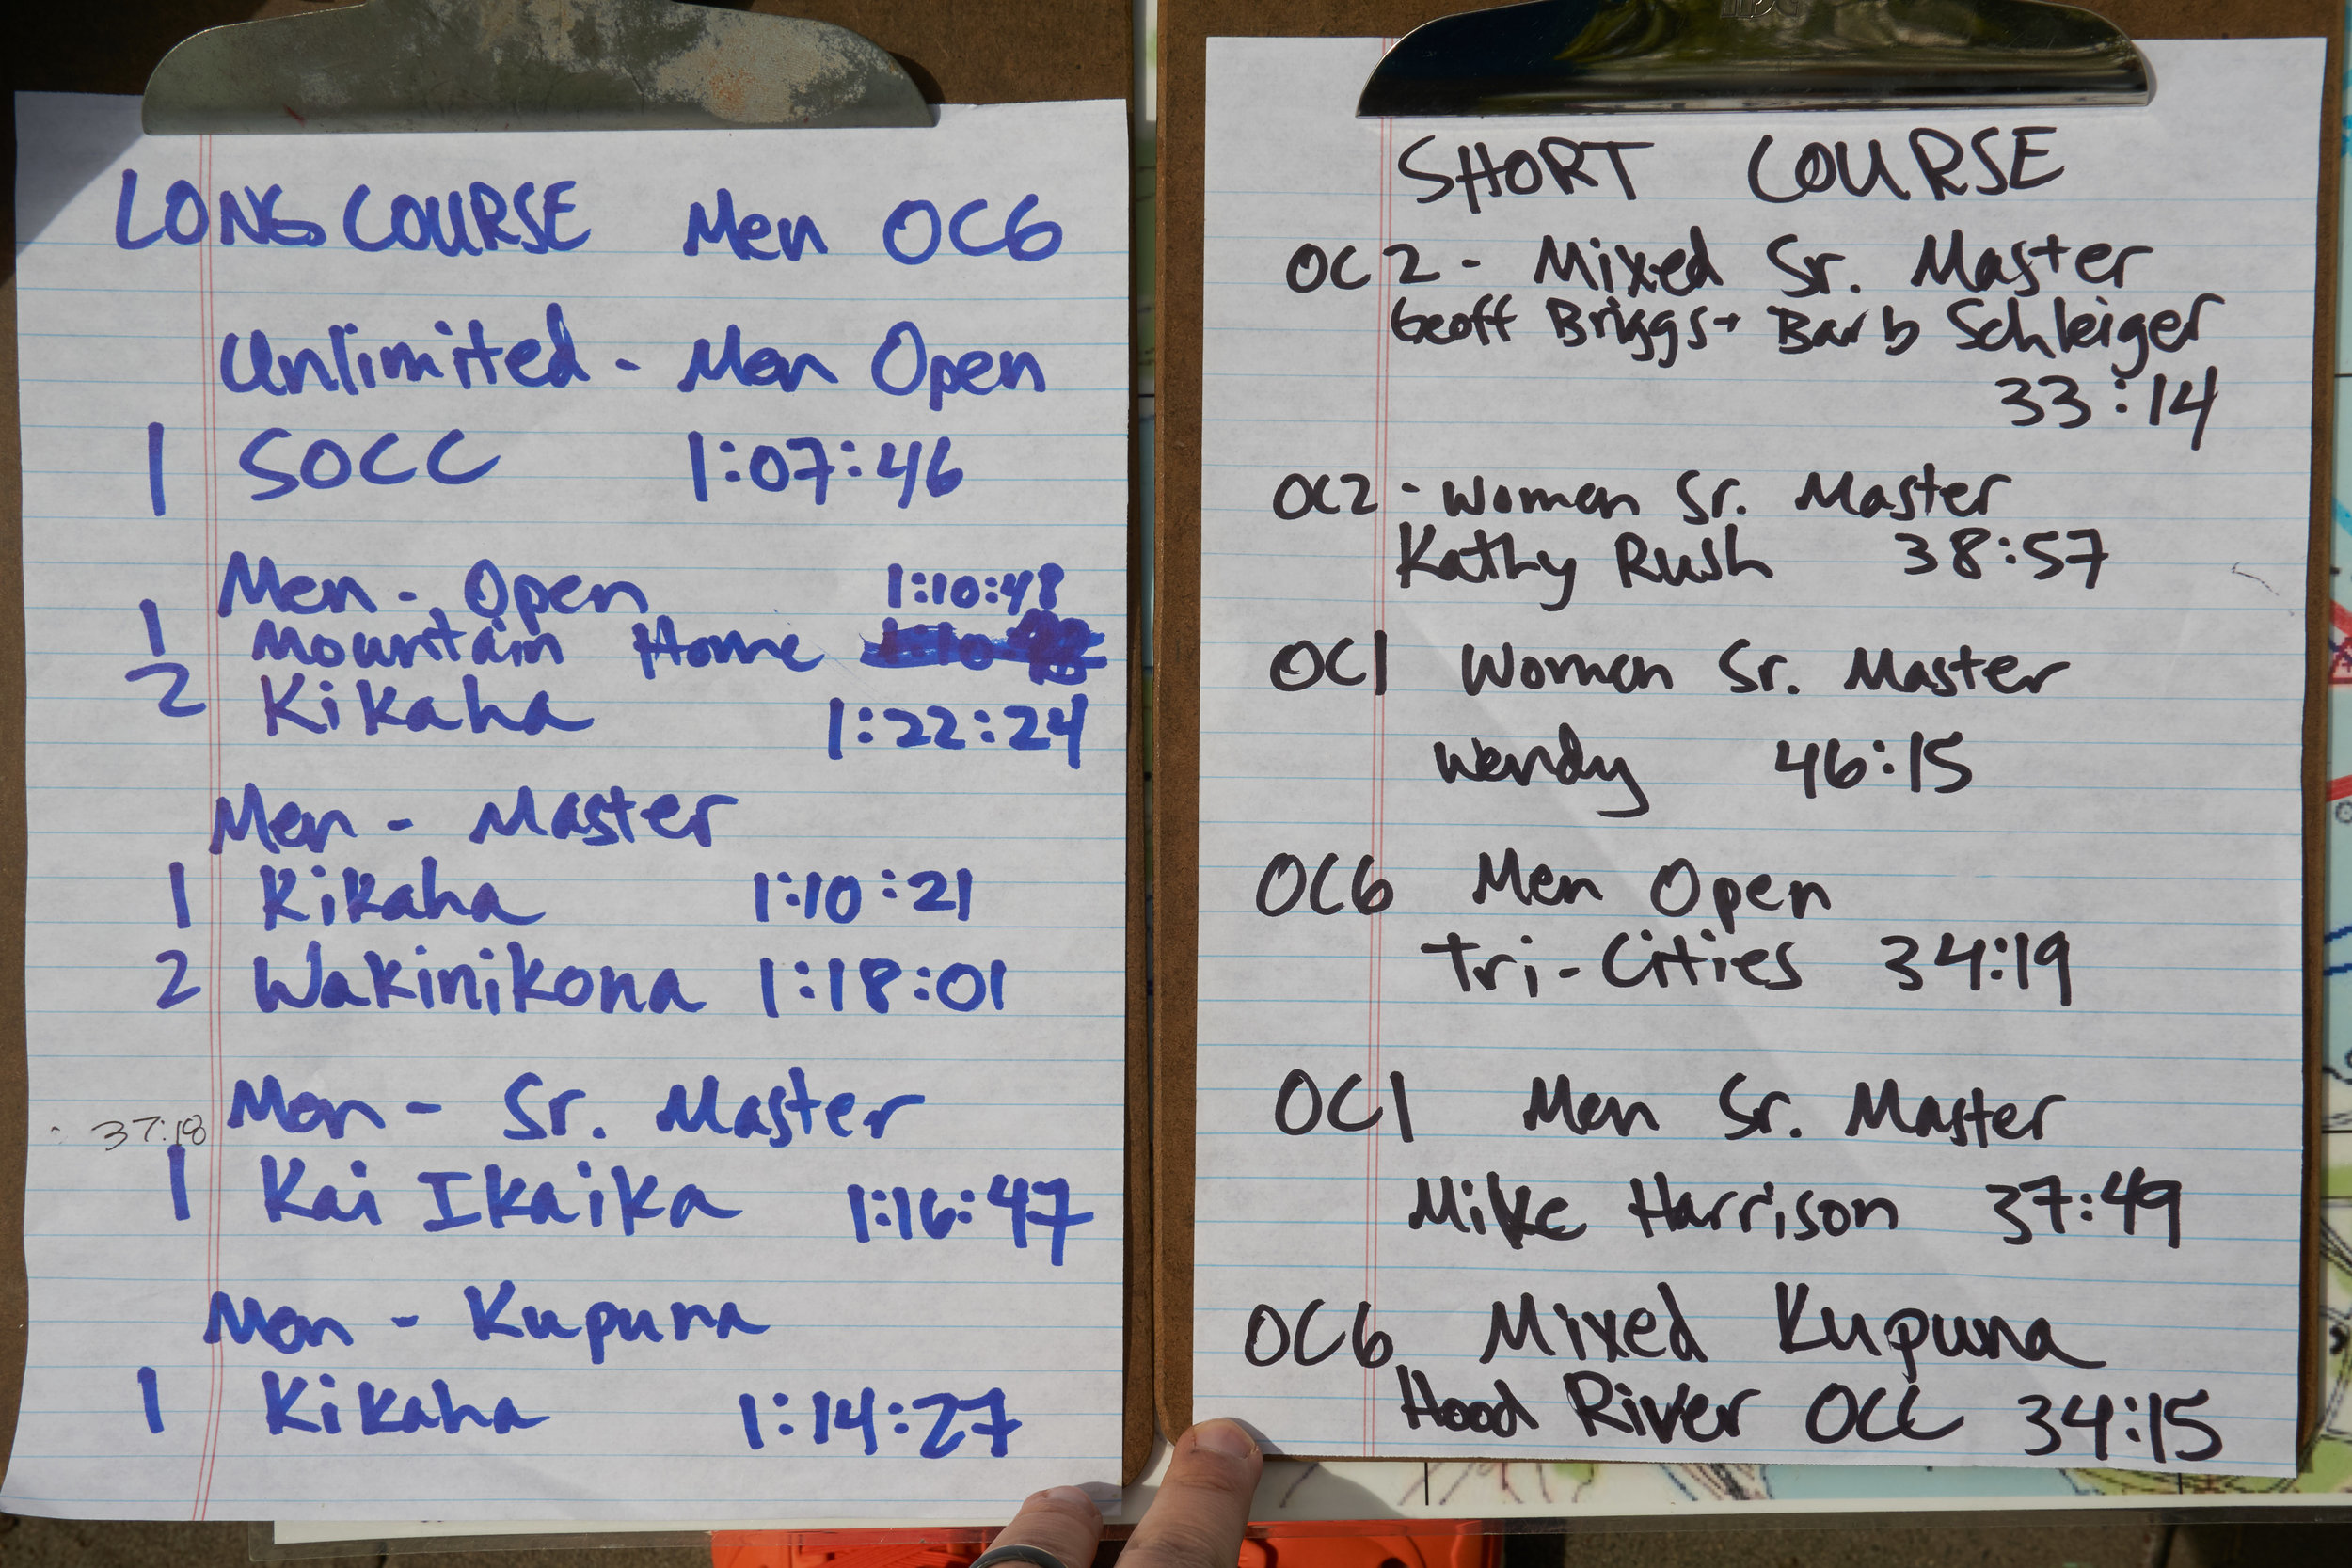 LONG COURSE Men OC6
Unlimited - Men Open
1 SOCC 1:07:46
Men - Open 1:10:48
1 Mountain Home
2 Kikaha 1:22:24
Men - Master
1 Kikaha 1:10:21
2 Wakinikona 1:18:01
Men - Sr. Master
37:18
1 Kai Ikaika 1:16:47
Men - Kupuna
1 Kikaha 1:14:27
SHORT COURSE
OC2 - Mixed Sr. Master
Geoff Briggs + Barb Schleiger
33:14
OC2 - Women Sr. Master
Kathy Rush 38:57
OC1 Women Sr. Master
Wendy 46:15
OC6 Men Open
Tri-Cities 34:19
OC1 Men Sr. Master
Mike Harrison 37:49
OC6 Mixed Kupuna
Hood River OCC 34:15